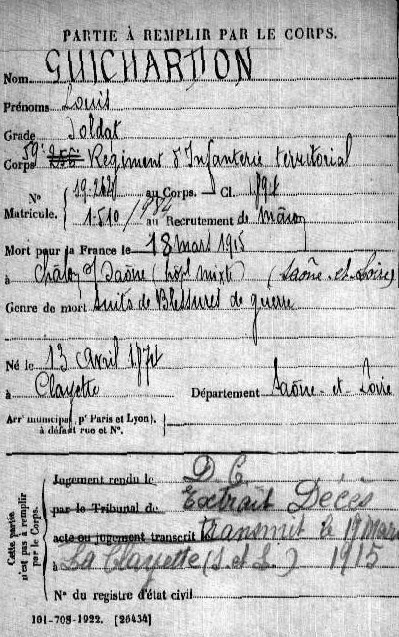 PARTIE À REMPLIR PAR LE CORPS.
Nom GUICHARDON
Prénoms Louis
Grade Soldat
Corps 59e Régiment d'Infanterie territorial
N° au Corps. — Cl. 1894
Matricule. 1510 au Recrutement de Mâcon
Mort pour la France le 18 mars 1915
à Chalon s/ Saône (hôpl mixte) (Saône-et-Loire)
Genre de mort Suites de Blessures de guerre
Né le 13 Avril 1874
à Clayette Département Saône-et-Loire
Arrt municipal (pr Paris et Lyon),
à défaut rue et N°.
Cette partie n'est pas à remplir par le Corps.
Jugement rendu le D.C
par le Tribunal de Extrait Décès
acte ou jugement transcrit le transmit le 19 mars
à La Clayette (S. et L.) 1915
N° du registre d'état civil
101-708-1922. [26434]